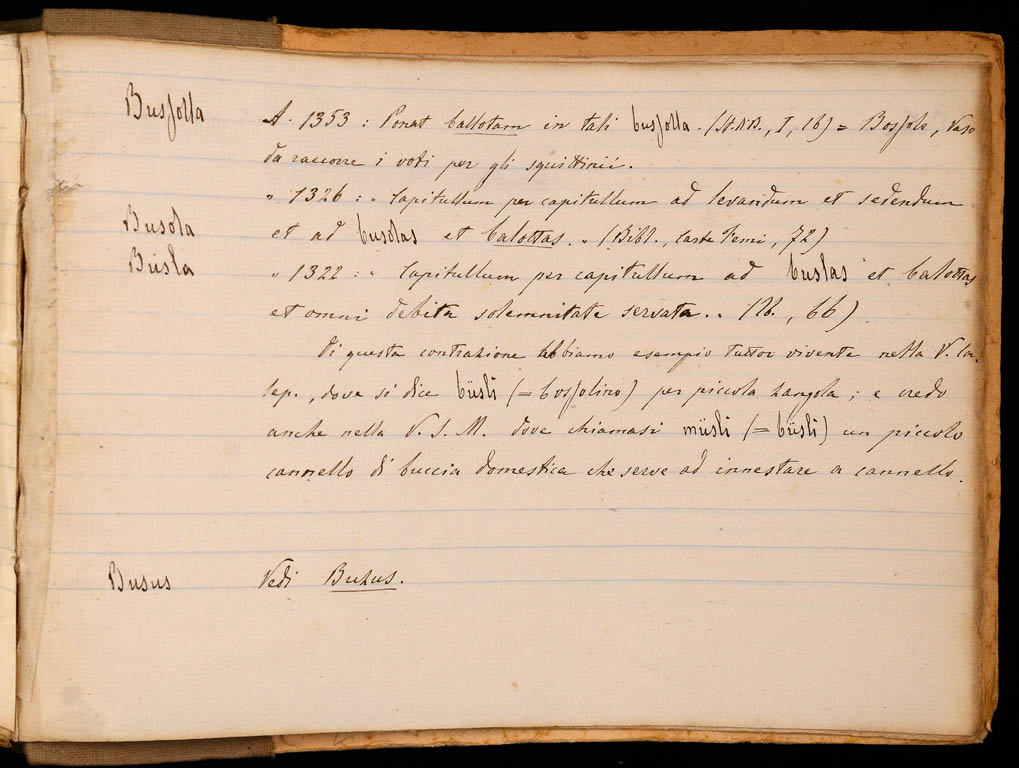 Bussolla A. 1353: Ponat ballotam in tali bussolla. (St. AR., I, 16) = Bossolo, vaso
da raccorre i voti per gli squittinii.
" 1326: " Capitullum per capitullum ad levandum et sedendum
Busola et ad busolas et balottas. " (Bibl., Carte Pemi, 72)
Busla " 1322: " Capitullum per capitullum ad buslas et balottas
et omni debita solemnitate servata. " Ib., 66)
Di questa contrazione abbiamo esempio tuttor vivente nella V. Ca-
lep., dove si dice büsli (= bossolino) per piccola zangola; e credo
anche nella V. S. M. dove chiamasi müsli (= büsli) un piccolo
cannello di buccia domestica che serve ad innestare a cannello.
Busus Vedi Buzus.